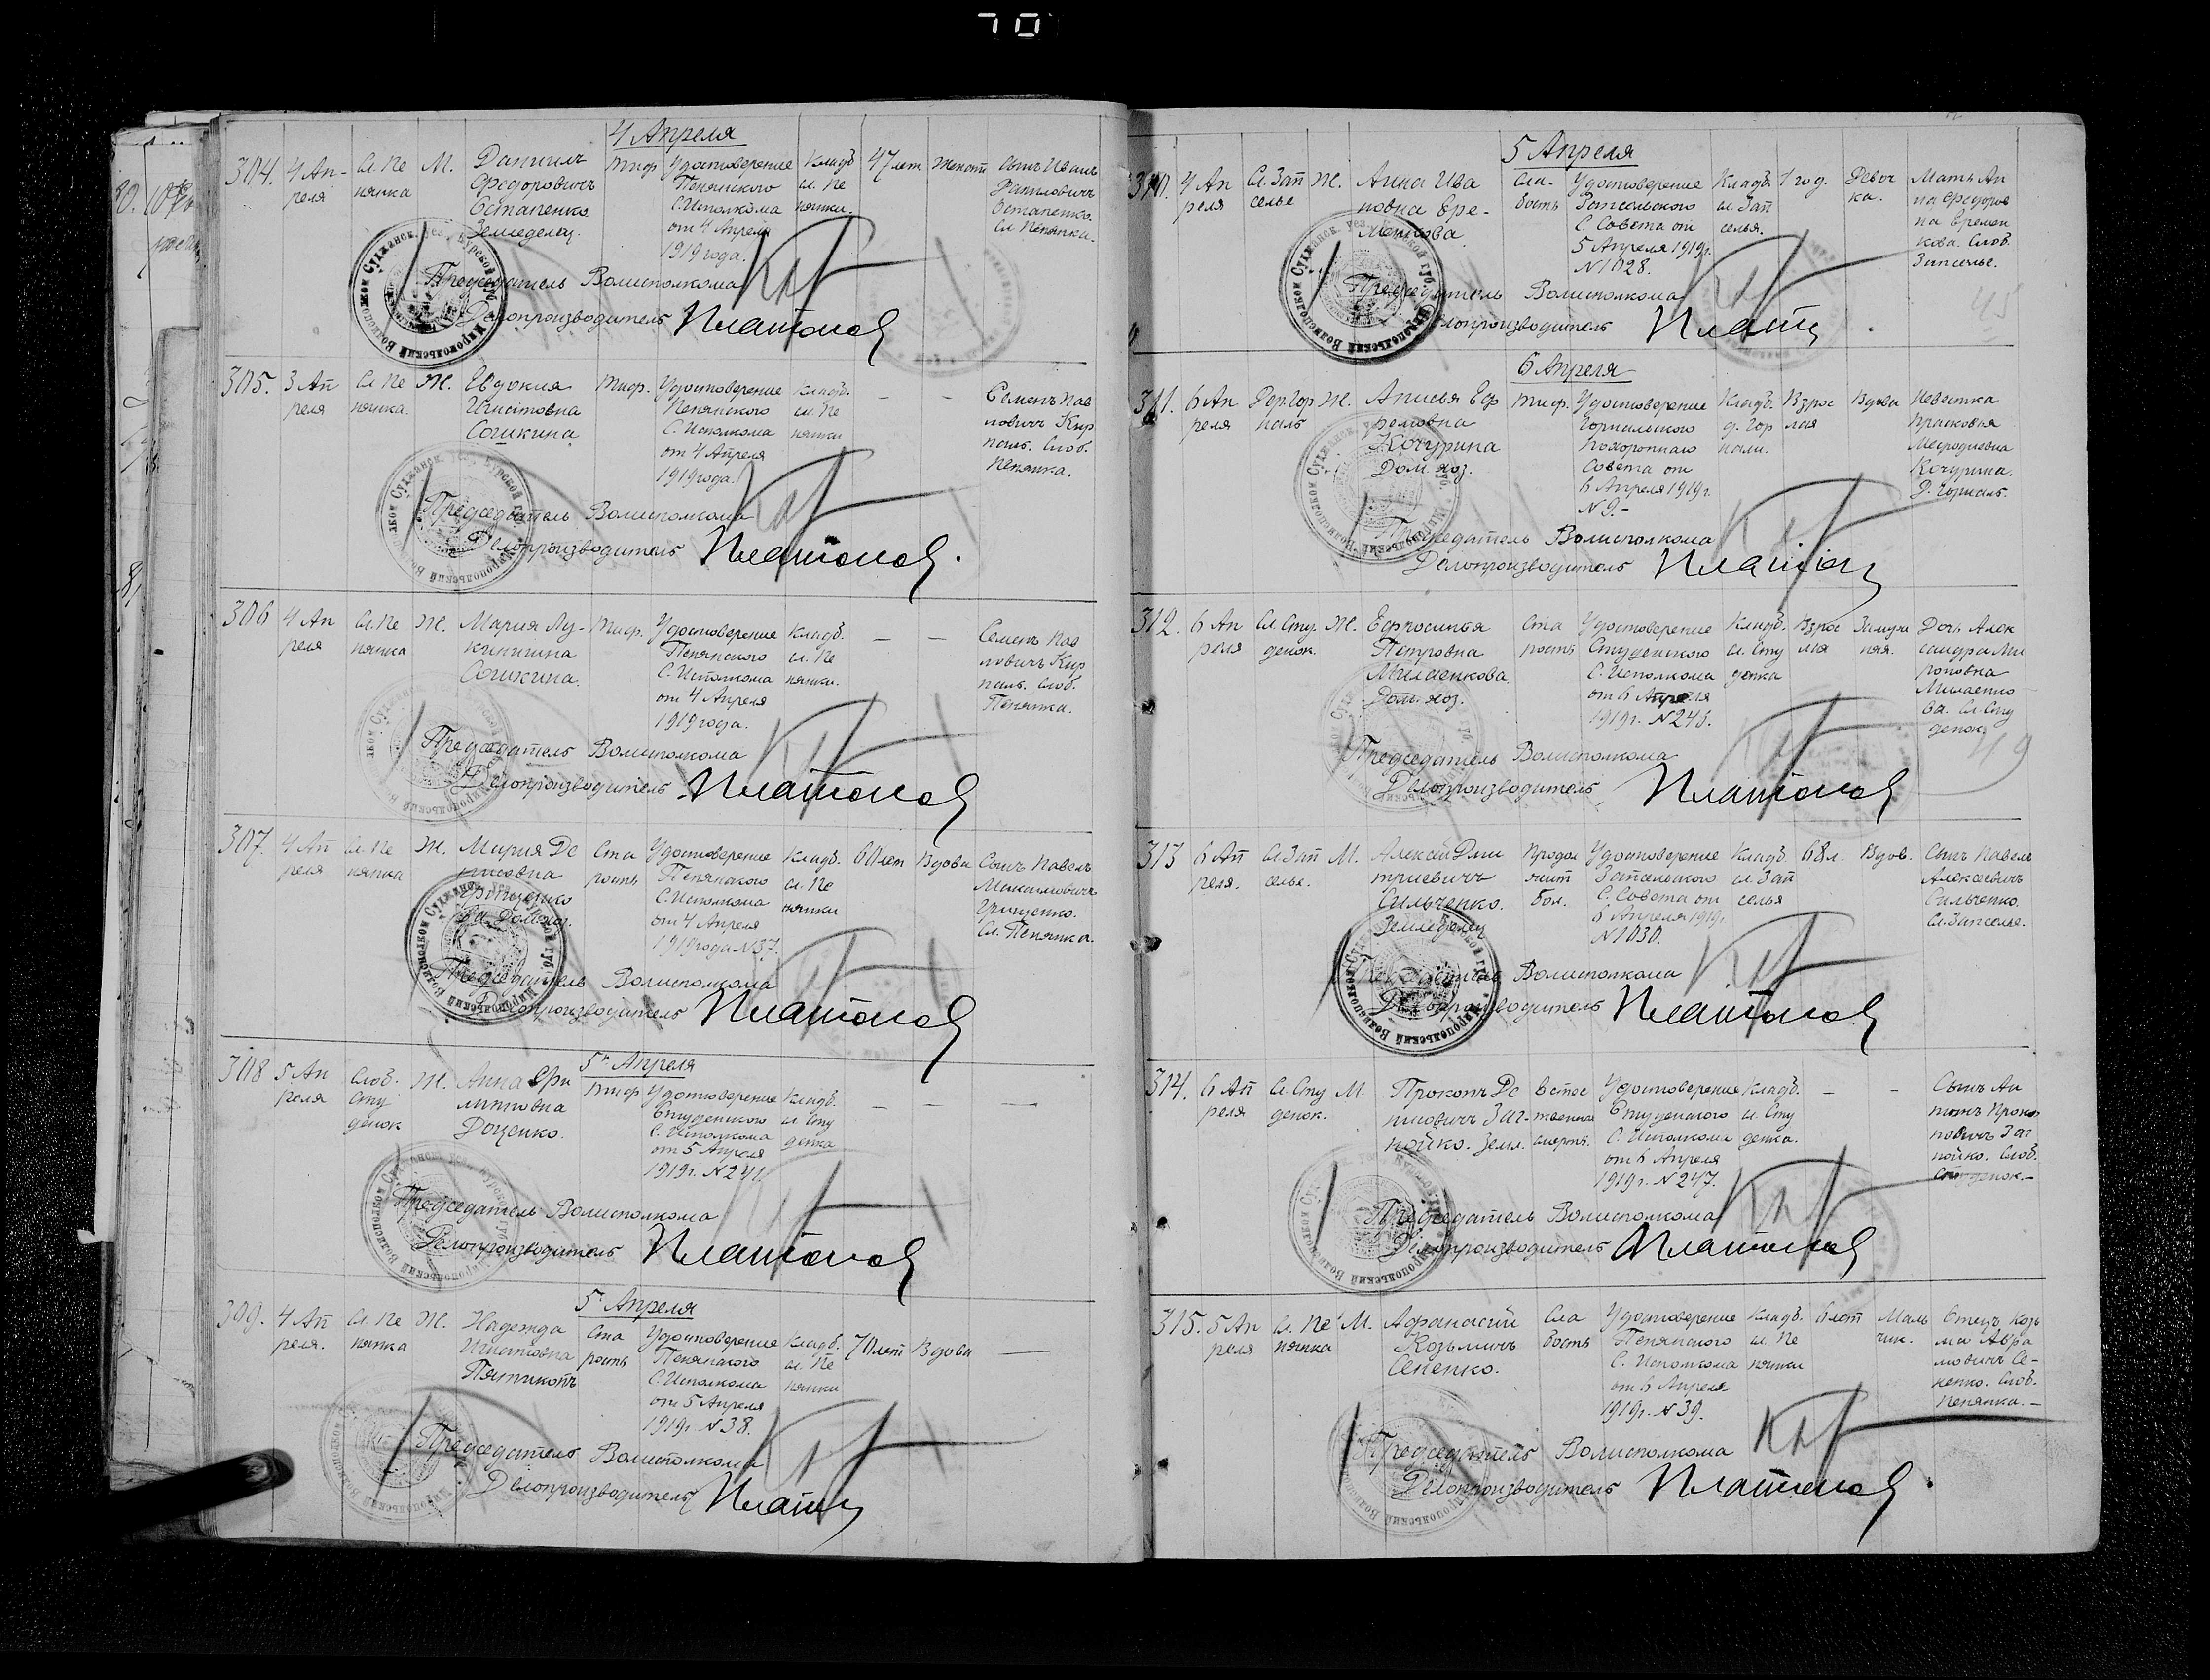 70
4 Апреля
304. 4 Ап-
реля
Сл. Пе
нянка
М.
Даниилъ
Федоровичъ
Остапенко
Земледелец.
тиф
Удостоверение
Пенянского
С. Исполкома
от 4 Апреля
1919 года.
Кладб
сл. Пе
нянки.
47 лет
женат
сынъ Иванъ
Данилович
Остапенко.
Сл. Пенянка.
Председатель Волисполкома
Делопроизводитель Платонов
305. 3 Ап
реля
Сл. Пе
нянка.
Ж.
Евдокия
Игнатовна
Сошкина
тиф.
Удостоверение
Пенянского
С. Исполкома
от 4 Апреля
1919 года.
Кладб.
сл. Пе
нянки
—
—
Семенъ Пав
лович Кир
Слоб.
Пенянка.
Председатель Волисполкома
Делопроизводитель Платонов.
306 4 Ап
реля
Сл. Пе
нянка
Ж.
Мария Лу-
кинична
Сошкина.
тиф.
Удостоверение
Пенянского
С. Исполкома
от 4 Апреля
1919 года.
Кладб.
сл. Пе
нянки.
—
—
Семенъ Пав
ловичъ Кир
Слоб.
Пенянка.
Председатель Волисполкома
Делопроизводитель Платонов
307. 4 Ап
реля
Сл. Пе
нянка
Ж.
Мария Де
нисовна
Домхоз.
Ста
рость
Удостоверение
Пенянского
С. Исполкома
от 4 Апреля
1919 года N 37.
Кладб.
сл. Пе
нянки
60 лет
Вдова
Сынъ Павелъ
Максимовичъ
Грищенко.
Сл. Пенянка.
Председатель Волисполкома
Делопроизводитель Платонов
5го Апреля
308 5 Ап
реля
Слоб.
Сту
денок
Ж.
Анна Фи
липовна
Доценко.
тиф
Удостоверение
Студенского
С. Исполкома
от 5 Апреля
1919 г. N 241
Кладб.
сл Сту
денка
—
—
—
Председатель Волисполкома
Делопроизводитель Платонов
5го Апреля
309. 4 Ап
реля.
Сл. Пе
нянка
Ж.
Надежда
Игнатовна
Пятикопъ
Ста
рость
Удостоверение
Пенянского
С. Исполкома
от 5 Апреля
1919 г. N 38.
Кладб.
сл. Пе
нянки
70 лет
Вдова
—
Председатель Волисполкома
Делопроизводитель
5 Апреля
310. 4 Ап
реля
Сл. Зап
селье
Ж.
Анна Ива
новна Ере-
менкова
сла-
бость
Удостоверение
Запсельского
С. Совета от
5 Апреля 1919 г.
N 1028.
Кладб.
сл. Зап
селья.
1 год.
Девоч
ка.
Мать Ан
на Федоров
на Еремен
кова. Слоб.
Запселье.
45
Председатель Волисполкома
Делопроизводитель
6 Апреля
311. 6 Ап
реля
Дер. Гор
наль
Ж.
Анисья Еф
ремовна
Кочурина
Дом. хоз.
тиф.
Удостоверение
Горнальского
Похоронного
Совета от
6 Апреля 1919 г.
N 9.-
Кладб.
д. Гор
нали.
Взрос
лая
Вдова
Невестка
Прасковья
Мефодиевна
Кочурина.
Д. Горналь.
Председатель Волисполкома
Делопроизводитель
312. 6 Ап
реля
Сл. Сту
денок.
Ж.
Ефросинья
Петровна
Милаенкова.
Дом. хоз.
Ста
рость
Удостоверение
Студенского
С. Исполкома
от 6 Апреля
1919 г. N 243.
Кладб.
сл. Сту
денка
Взрос
лая
Замуж
няя.
Дочь Алек
сандра Ми
роновна
Милаенко
ва. Сл. Сту
денок
49
Председатель Волисполкома
Делопроизводитель Платонов
313 6 Ап
реля.
Сл. Зап
селье.
М.
Алексей Дми
триевичъ
Сильченко.
Земледелец
Продол
жит
бол.
Удостоверение
Запсельского
С. Совета от
6 Апреля 1919 г.
N 1030.
Кладб.
сл. Зап
селья
68 л.
Вдов.
Сынъ Павелъ
Алексеевичъ
Сильченко.
Сл. Запселье.
Председатель Волисполкома
Делопроизводитель Платонов
314. 6 Ап
реля
Сл. Сту
денок.
М.
Прокопъ Де
нисовичъ Заг-
нойко. Земл.
Естес
твенная
смерть.
Удостоверение
Студенского
С. Исполкома
от 6 Апреля
1919 г. N 247.
Кладб.
сл. Сту
денка.
—
—
Сынъ Ан
тонъ Проко
повичъ Заг
нойко. Слоб.
Студенок.-
Председатель Волисполкома
Делопроизводитель Платонов
315. 5 Ап
реля
Сл. Пе
нянка
М.
Афанасий
Козьмичъ
Сененко.
Сла
бость
Удостоверение
Пенянского
С. Исполкома
от 6 Апреля
1919 г. N 39.
Кладб.
сл. Пе
нянки
6 лет
Маль
чик.
Отецъ Козь
ма Авра
мовичъ Се-
ненко. Слоб.
Пенянка.-
Председатель Волисполкома
Делопроизводитель Платонов.